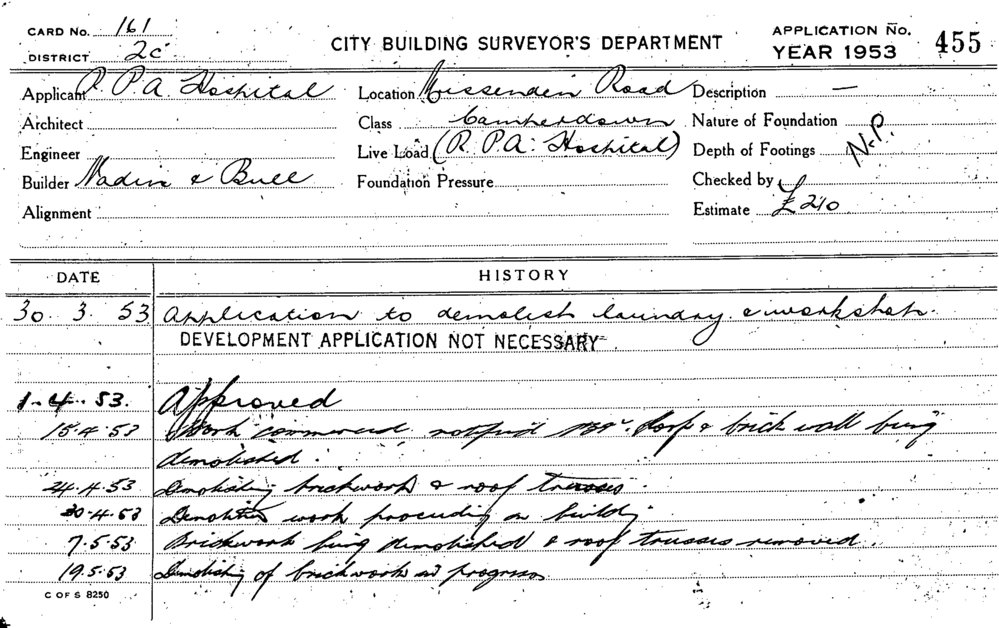 CARD No. 161
DISTRICT 2c
CITY BUILDING SURVEYOR'S DEPARTMENT
APPLICATION No.
YEAR 1953
455
Applicant R. P. A. Hospital
Location Missenden Road
Description —
Architect
Class Camperdown
Nature of Foundation
Engineer
Live Load (R. P. A. Hospital)
Depth of Footings
N.P.
Builder Nadin & Bull
Foundation Pressure
Checked by
Alignment
Estimate £ 210
DATE
HISTORY
30. 3. 53 Application to demolish laundry & workshop.
DEVELOPMENT APPLICATION NOT NECESSARY
1-4-53. Approved
15.4.53 Work commenced. & brick wall being
demolished.
24.4.53 Demolishing brickwork & roof trusses.
30.4.53 Demolition work proceeding on building
7.5.53 Brickwork being demolished & roof trusses removed.
19.5.53 Demolishing of brickwork in progress
C OF S 8250